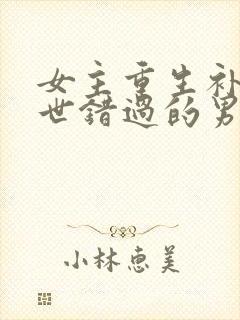 女主重生补
世错过的男
小林惠美